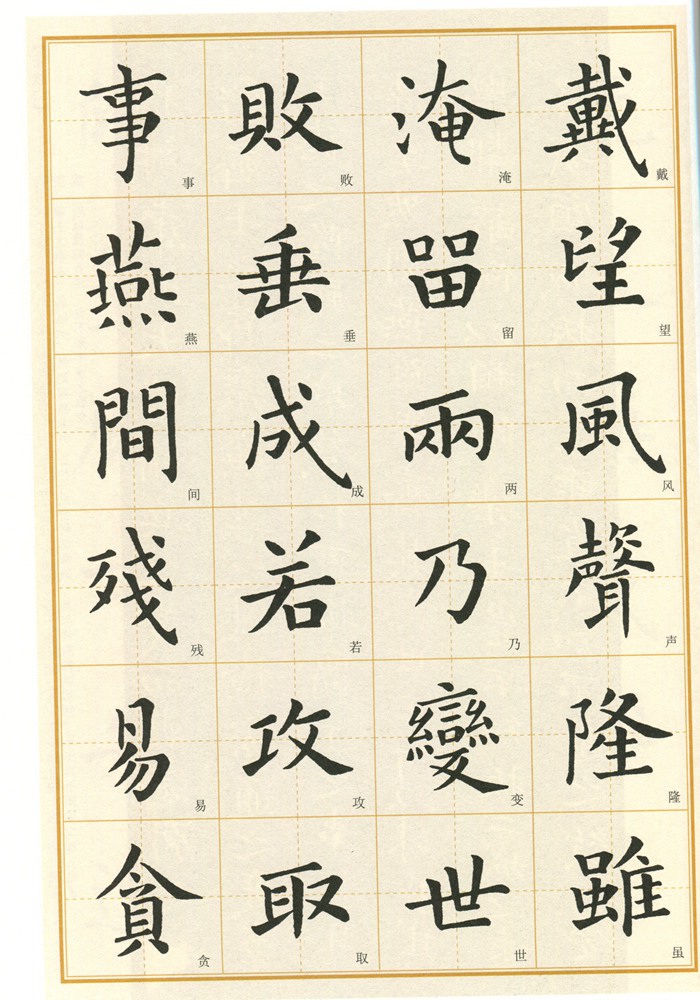 戴 戴
望 望
風 风
聲 声
隆 隆
雖 虽
淹 淹
留 留
兩 两
乃 乃
變 变
世 世
敗 败
垂 垂
成 成
若 若
攻 攻
取 取
事 事
燕 燕
間 间
殘 残
易 易
貪 贪